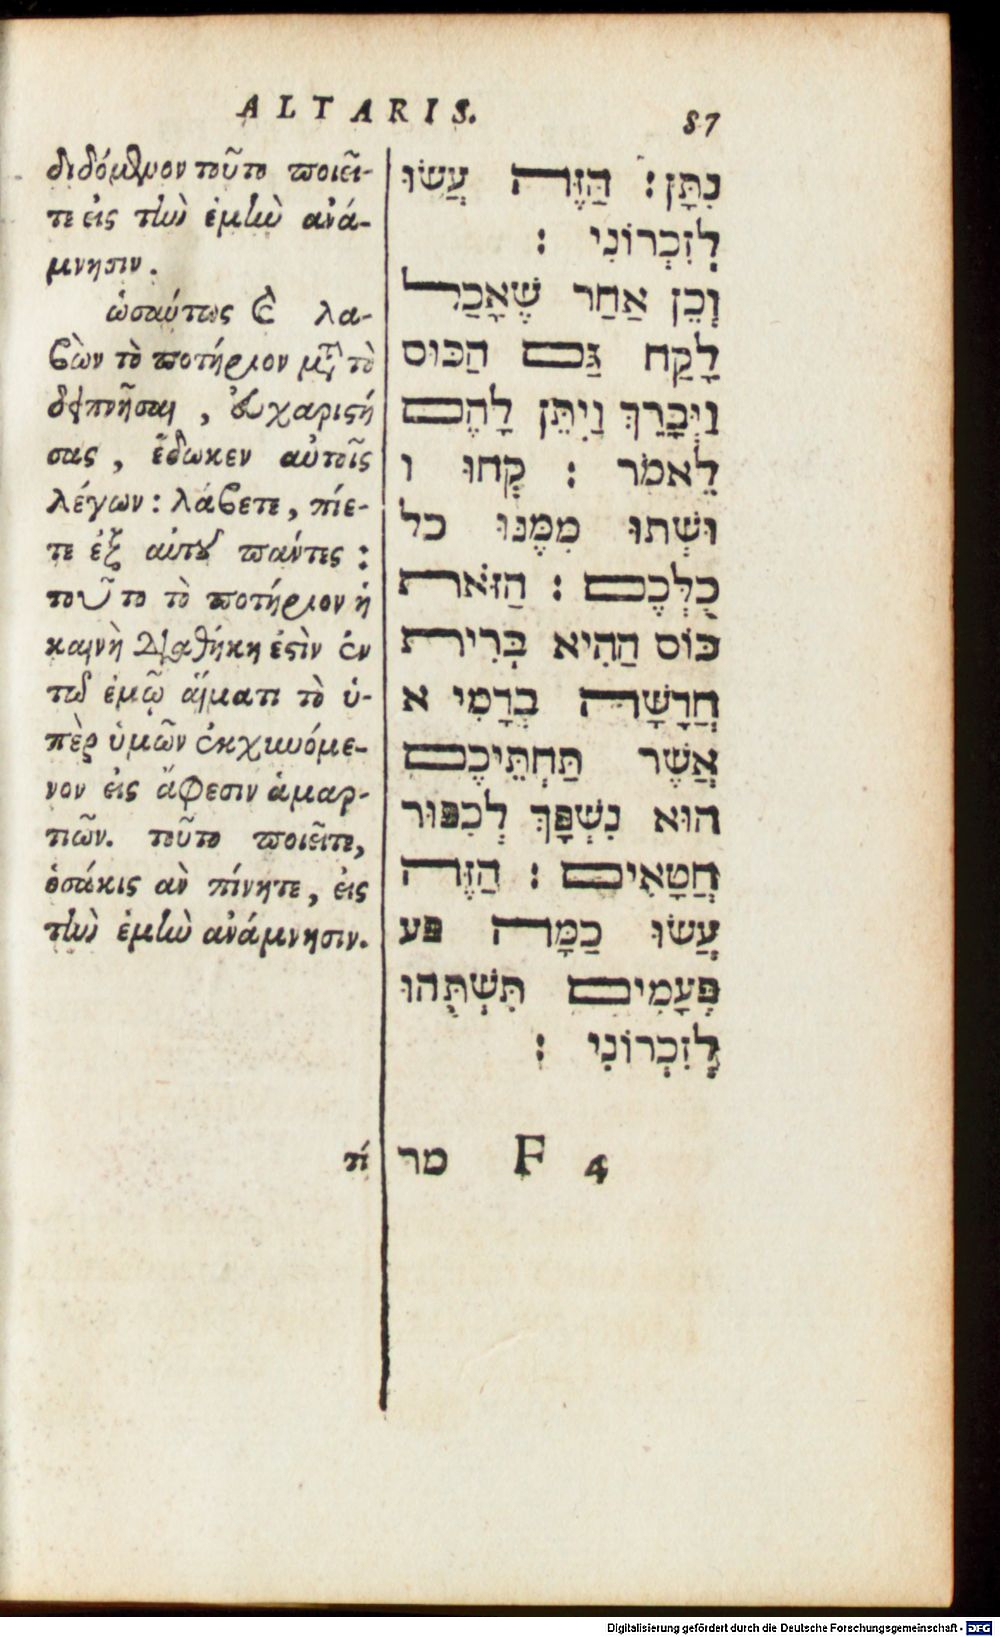 ALTARIS. 87
διδόμενον τοῦτο ποιεῖ-
τε εἰς τὴν ἐμὴν ἀνά-
μνησιν.
ὡσαύτως καὶ λα-
βὼν τὸ ποτήριον μετὰ τὸ
δειπνῆσαι, εὐχαριστή
σας, ἔδωκεν αὐτοῖς
λέγων: λάβετε, πίε-
τε ἐξ αὐτοῦ πάντες:
τοῦτο τὸ ποτήριον ἡ
καινὴ διαθήκη ἐστὶν ἐν
τῷ ἐμῷ αἵματι τὸ ὑ-
πὲρ ὑμῶν ἐκχυνόμε-
νον εἰς ἄφεσιν ἁμαρ-
τιῶν. τοῦτο ποιεῖτε,
ὁσάκις ἂν πίνητε, εἰς
τὴν ἐμὴν ἀνάμνησιν.
πί
נִתָּן: הַזֶּה עֲשׂוּ
לְזִכְרוֹנִי :
וְכֵן אַחַר שֶׁאָכַל
לָקַח גַּם הַכּוּס
וַיְּבָרֵךְ וַיִּתֵּן לָהֶם
לֵאמֹר : קְחוּ ו
וּשְׁתוּ מִמֶּנּוּ כל
כֻּלְּכֶם : הַזֹּאת
כּוֹס הַהִיא בְּרִית
חֲדָשָׁה בְדָמִי א
אֲשֶׁר תַּחְתֵּיכֶם
הוּא נִשְׁפָּךְ לְכִפּוּר
חֲטָאִים : הַזֶּה
עֲשׂוּ כַמָּה פע
פְּעָמִים תִּשְׁתֻּהוּ
לְזִכְרוֹנִי :
מר F 4
Digitalisierung gefördert durch die Deutsche Forschungsgemeinschaft - DFG